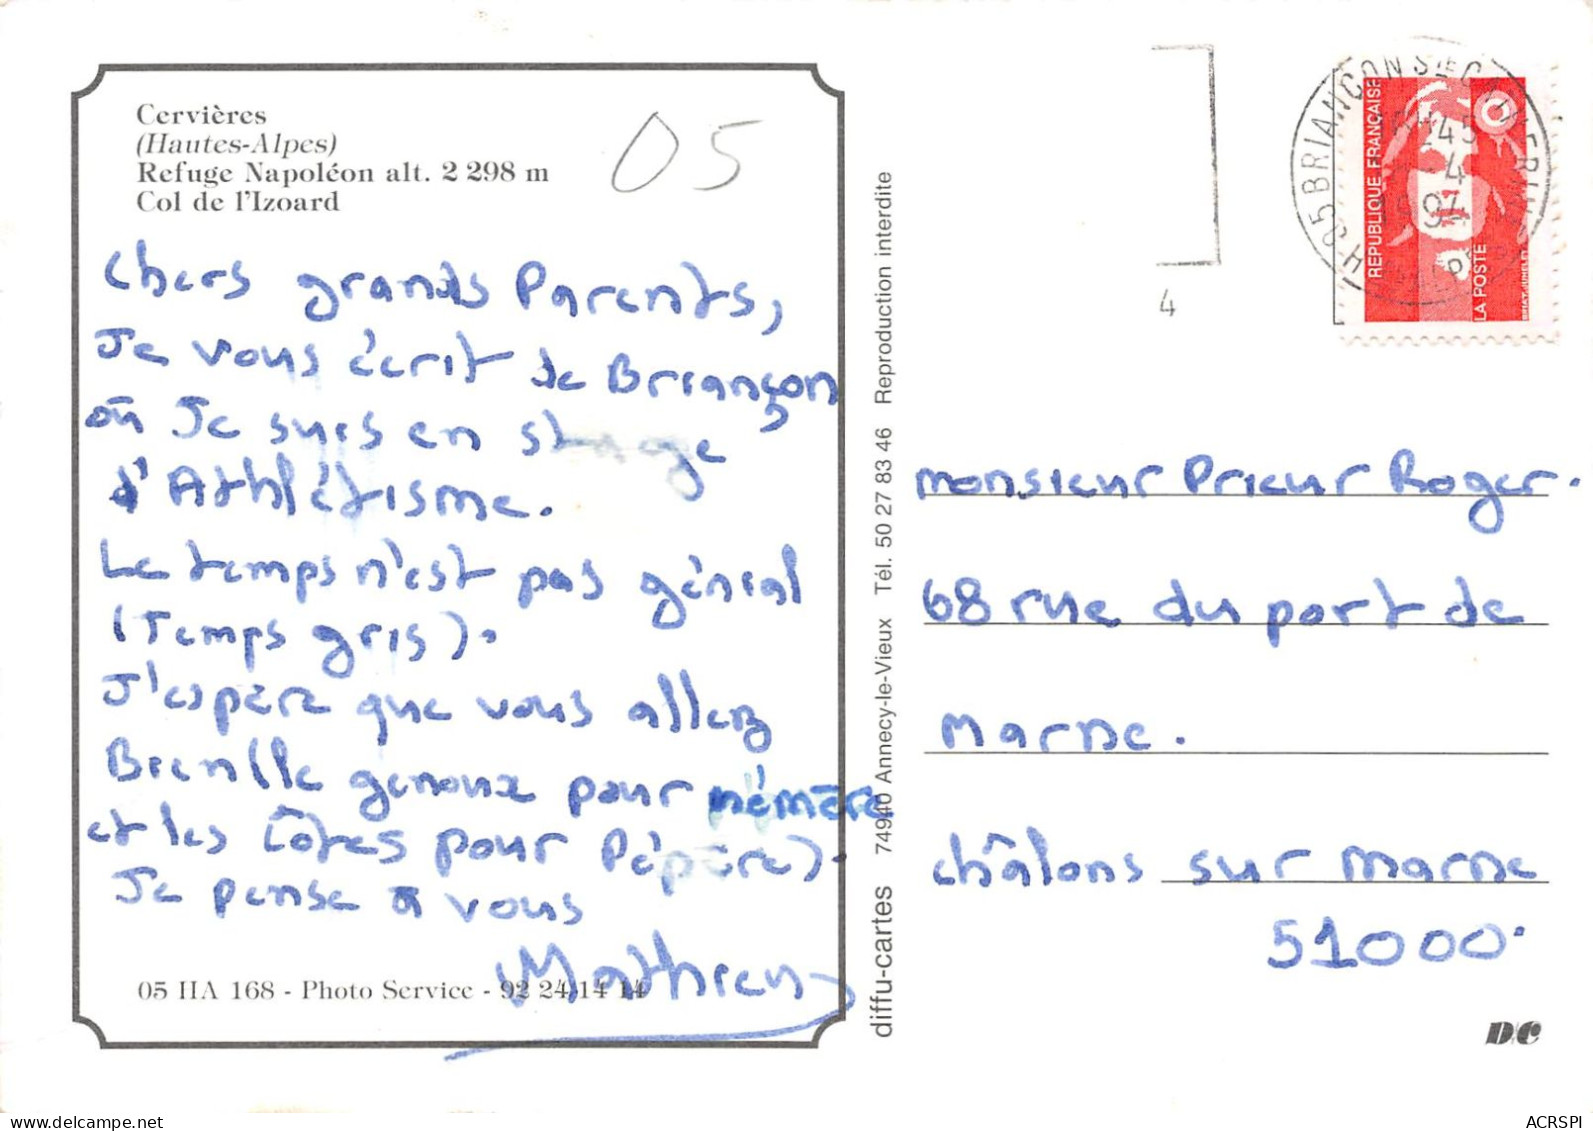 Cervières
(Hautes-Alpes)
Refuge Napoléon alt. 2 298 m
Col de l'Izoard
05
Chers grands Parents,
Je vous écrit de Briançon
où Je suis en stage
d'Athlétisme.
Le temps n'est pas génial
(Temps gris).
J'espère que vous allez
Bien (le genoux pour mémère
et les côtes pour Pépère).
Je pense à vous
Mathieu
05 HA 168 - Photo Service - 92 24 14 14
diffu-cartes 74940 Annecy-le-Vieux Tél. 50 27 83 46 Reproduction interdite
4
BRIANCON STE CATHERINE
H
45
4
94
REPUBLIQUE FRANÇAISE
LA POSTE
monsieur Prieur Roger.
68 rue du port de
Marne.
châlons sur marne
51000.
D/C
ACRSPI